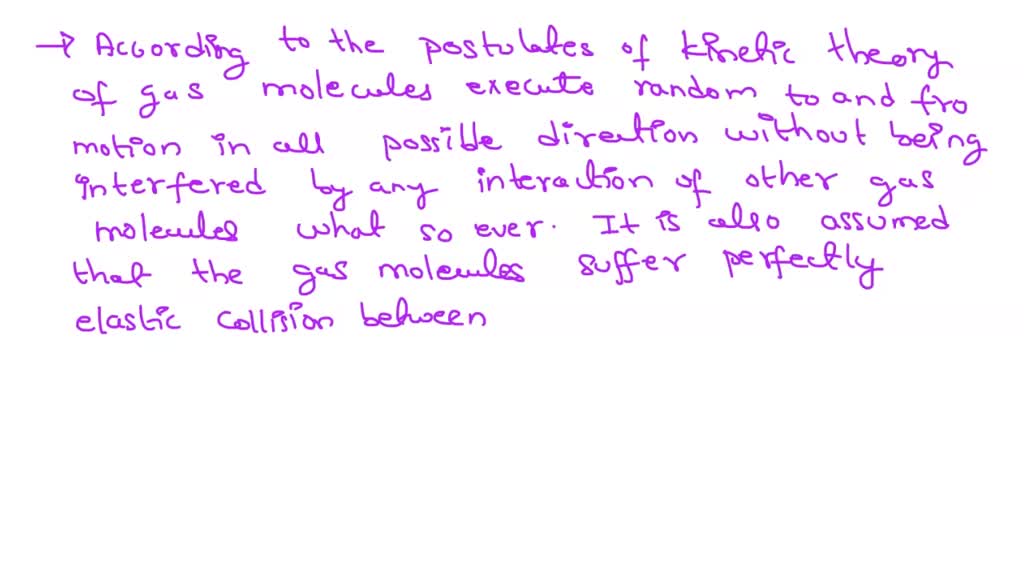 → According to the postulates of kinetic theory
of gas molecules execute random to and fro
motion in all possible direction without being
interfered by any interaction of other gas
molecules what so ever. It is also assumed
that the gas molecules suffer perfectly
elastic collision between